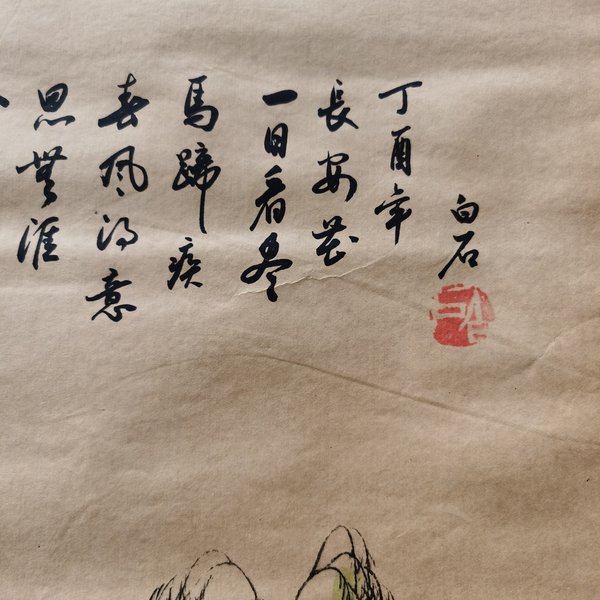 思無涯
春风得意
馬蹄疾
一日看尽
長安花
丁酉年
白石